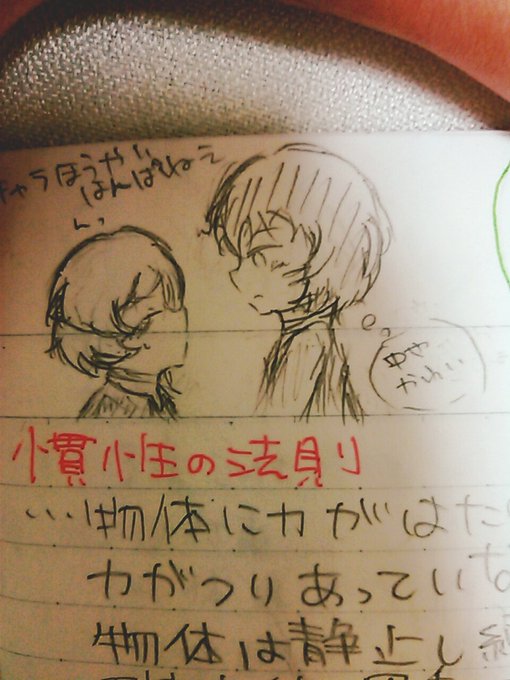 キャラほうかい
はんぱねえ
ゆや
かわいい
慣性の法則
…物体に力がはた
力がつりあっていな
物体は静止し続